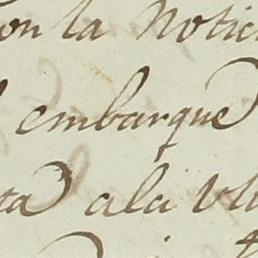 on la Notici
embarque
ta a la Vl